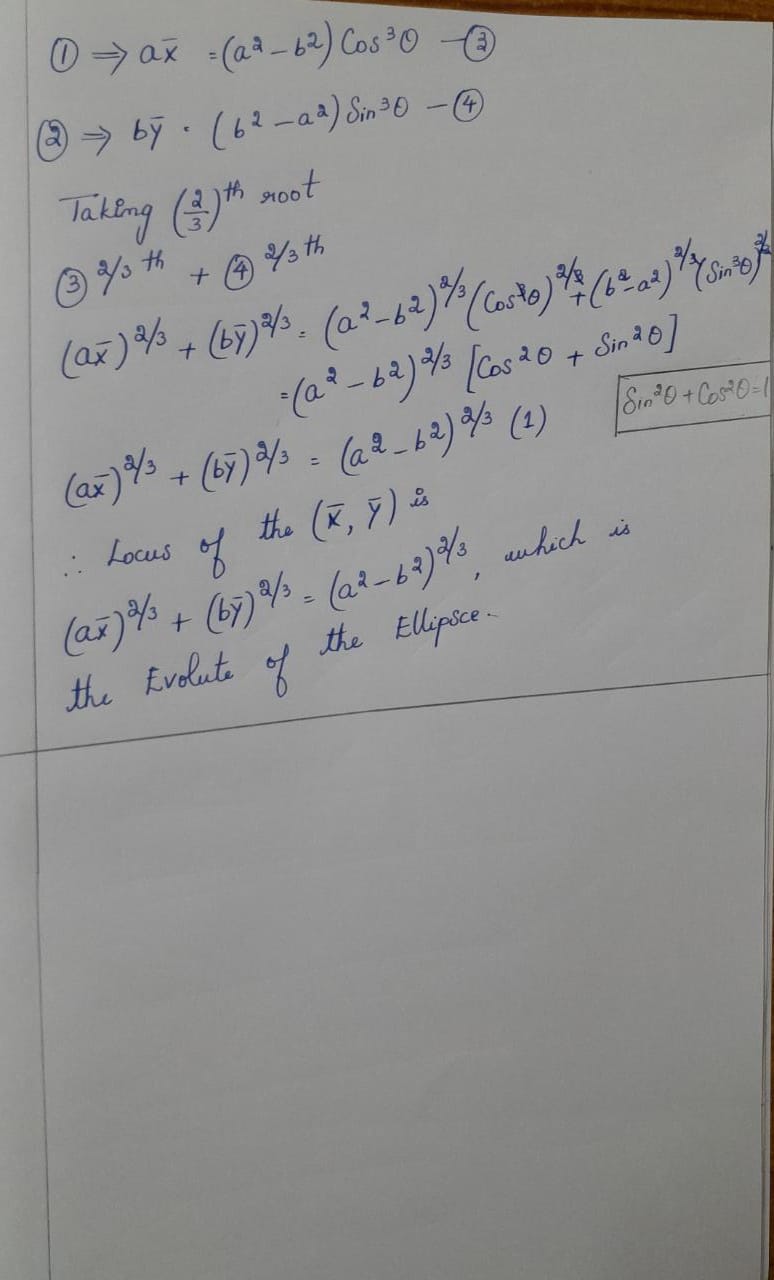 ① ⇒ ax̄ = (a² - b²) Cos³θ —③
② ⇒ bȳ = (b² - a²) Sin³θ —④
Taking (2/3)th root
③ 2/3 th + ④ 2/3 th
(ax̄)^2/3 + (bȳ)^2/3 = (a² - b²)^2/3 (Cos³θ)^2/3 + (b² - a²)^2/3 (Sin³θ)^2/3
= (a² - b²)^2/3 [Cos²θ + Sin²θ]
Sin²θ + Cos²θ = 1
(ax̄)^2/3 + (bȳ)^2/3 = (a² - b²)^2/3 (1)
∴ Locus of the (x̄, ȳ) is
(ax̄)^2/3 + (bȳ)^2/3 = (a² - b²)^2/3, which is
the Evolute of the Ellipsce.